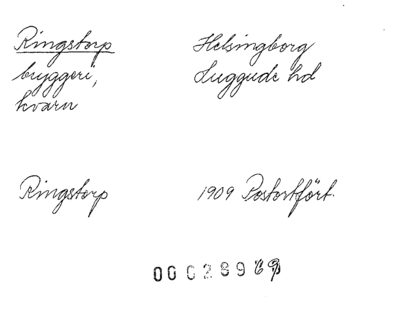 Ringstorp Helsingborg
bryggeri, Luggude hd
kvarn
Ringstorp 1909 Postortfört.
000289